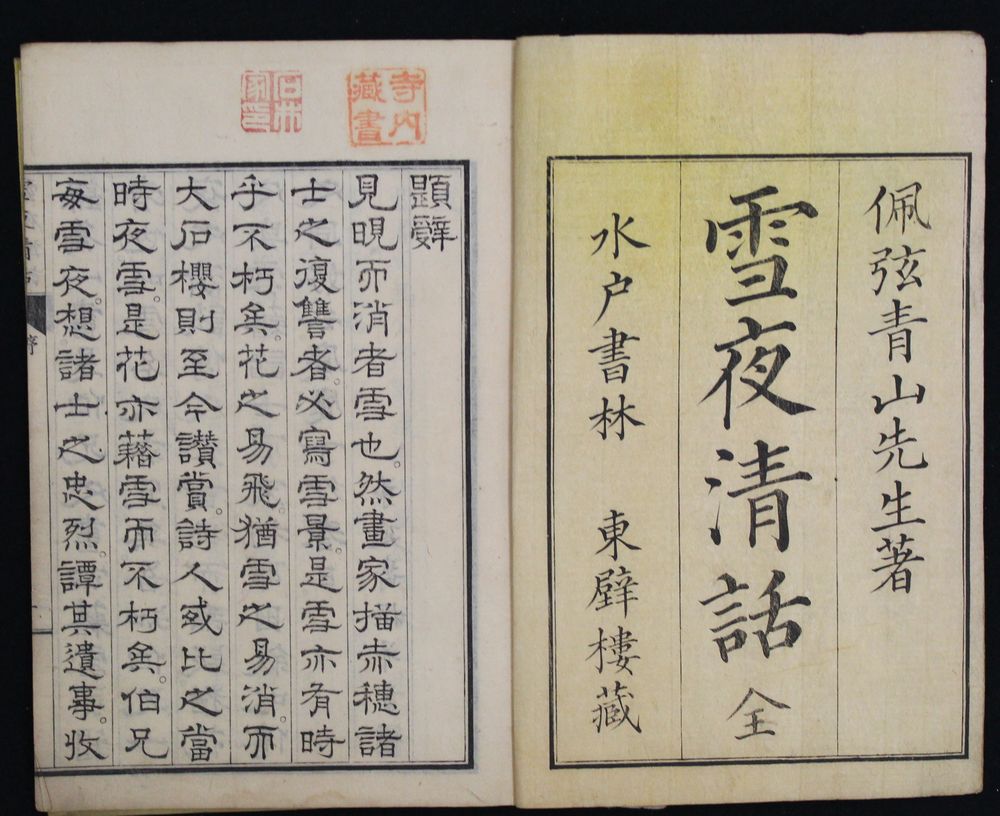 佩弦青山先生著
雪夜清話 全
水戸書林 東壁樓藏
寺内藏書
題辭
見晛而消者雪也。然畫家描赤穗諸
士之復讐者。必寫雪景。是雪亦有時
乎不朽矣。花之易飛。猶雪之易消。而
大石櫻則至今讃賞。詩人或比之當
時夜雪。是花亦藉雪而不朽矣。伯兄
每雪夜。想諸士之忠烈。譚其遺事。收